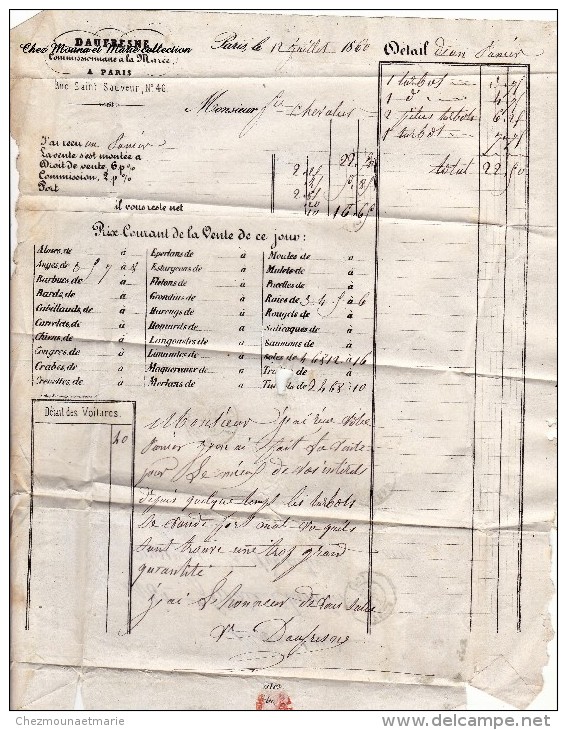 DAUFRESNE
Chez Mouna et Marie collection
Commissionnaire à la Marée
A PARIS
Rue Saint Sauveur, Nº 46.
Paris, le 12 Juillet 1860
Détail d'un Panier
1 turbot
1 d°
2 petits turbots 6
1 turbot
total 22. 50
Monsieur Chevalier
J'ai reçu un Panier
La vente s'est montée à 22. 50
Droit de vente, 6 p%
Commission, 2 p%
Port
il vous reste net 16
Prix Courant de la Vente de ce jour:
Aloses, de à Eperlans de à Moules de à
Anges, de à Esturgeons de à Mulets de à
Barbues, de à Fletons de à Pucelles de à
Bards, de à Grondins de à Raies de 3 4 5 à 6
Cabillauds, de à Harengs de à Rougets de à
Carrelets, de à Homards de à Salicoques de à
Chiens, de à Langoustes de à Saumons de à
Congres, de à Limandes de à Soles de 4 6 8 12 à 16
Crabes, de à Maquereaux de à de à
Crevettes, de à Merlans de à de 2 4 6 8 à 10
Détail des Voitures.
40
Monsieur j'ai reçu votre
Panier j'en ai fait la vente
pour le mieux de vos intérêts
depuis quelque temps les turbots
se vende fort mal vu qu'ils
sont trouve une trop grand
quantité
j'ai l'honneur de vous saluer
Vve Daufresne
Chezmounaetmarie
www.delcampe.net